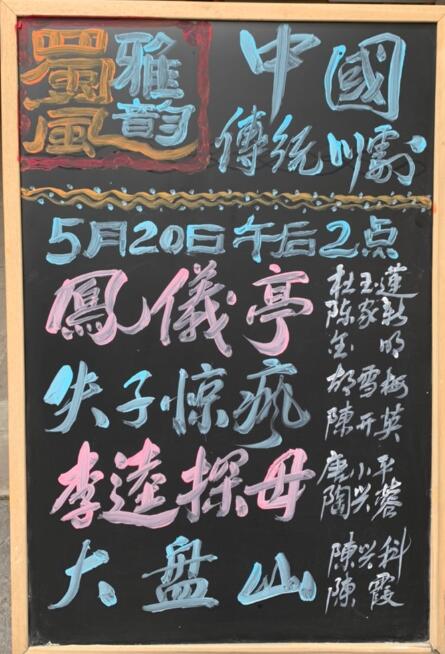 蜀風
雅韵
中國
傳統川劇
5月20日午后2点
鳳儀亭
杜玉蓮
陈家新
明
失子惊疯
胡雪梅
陳开英
李逵探母
唐小平
陶兴蓉
大盘山
陳兴科
陳霞